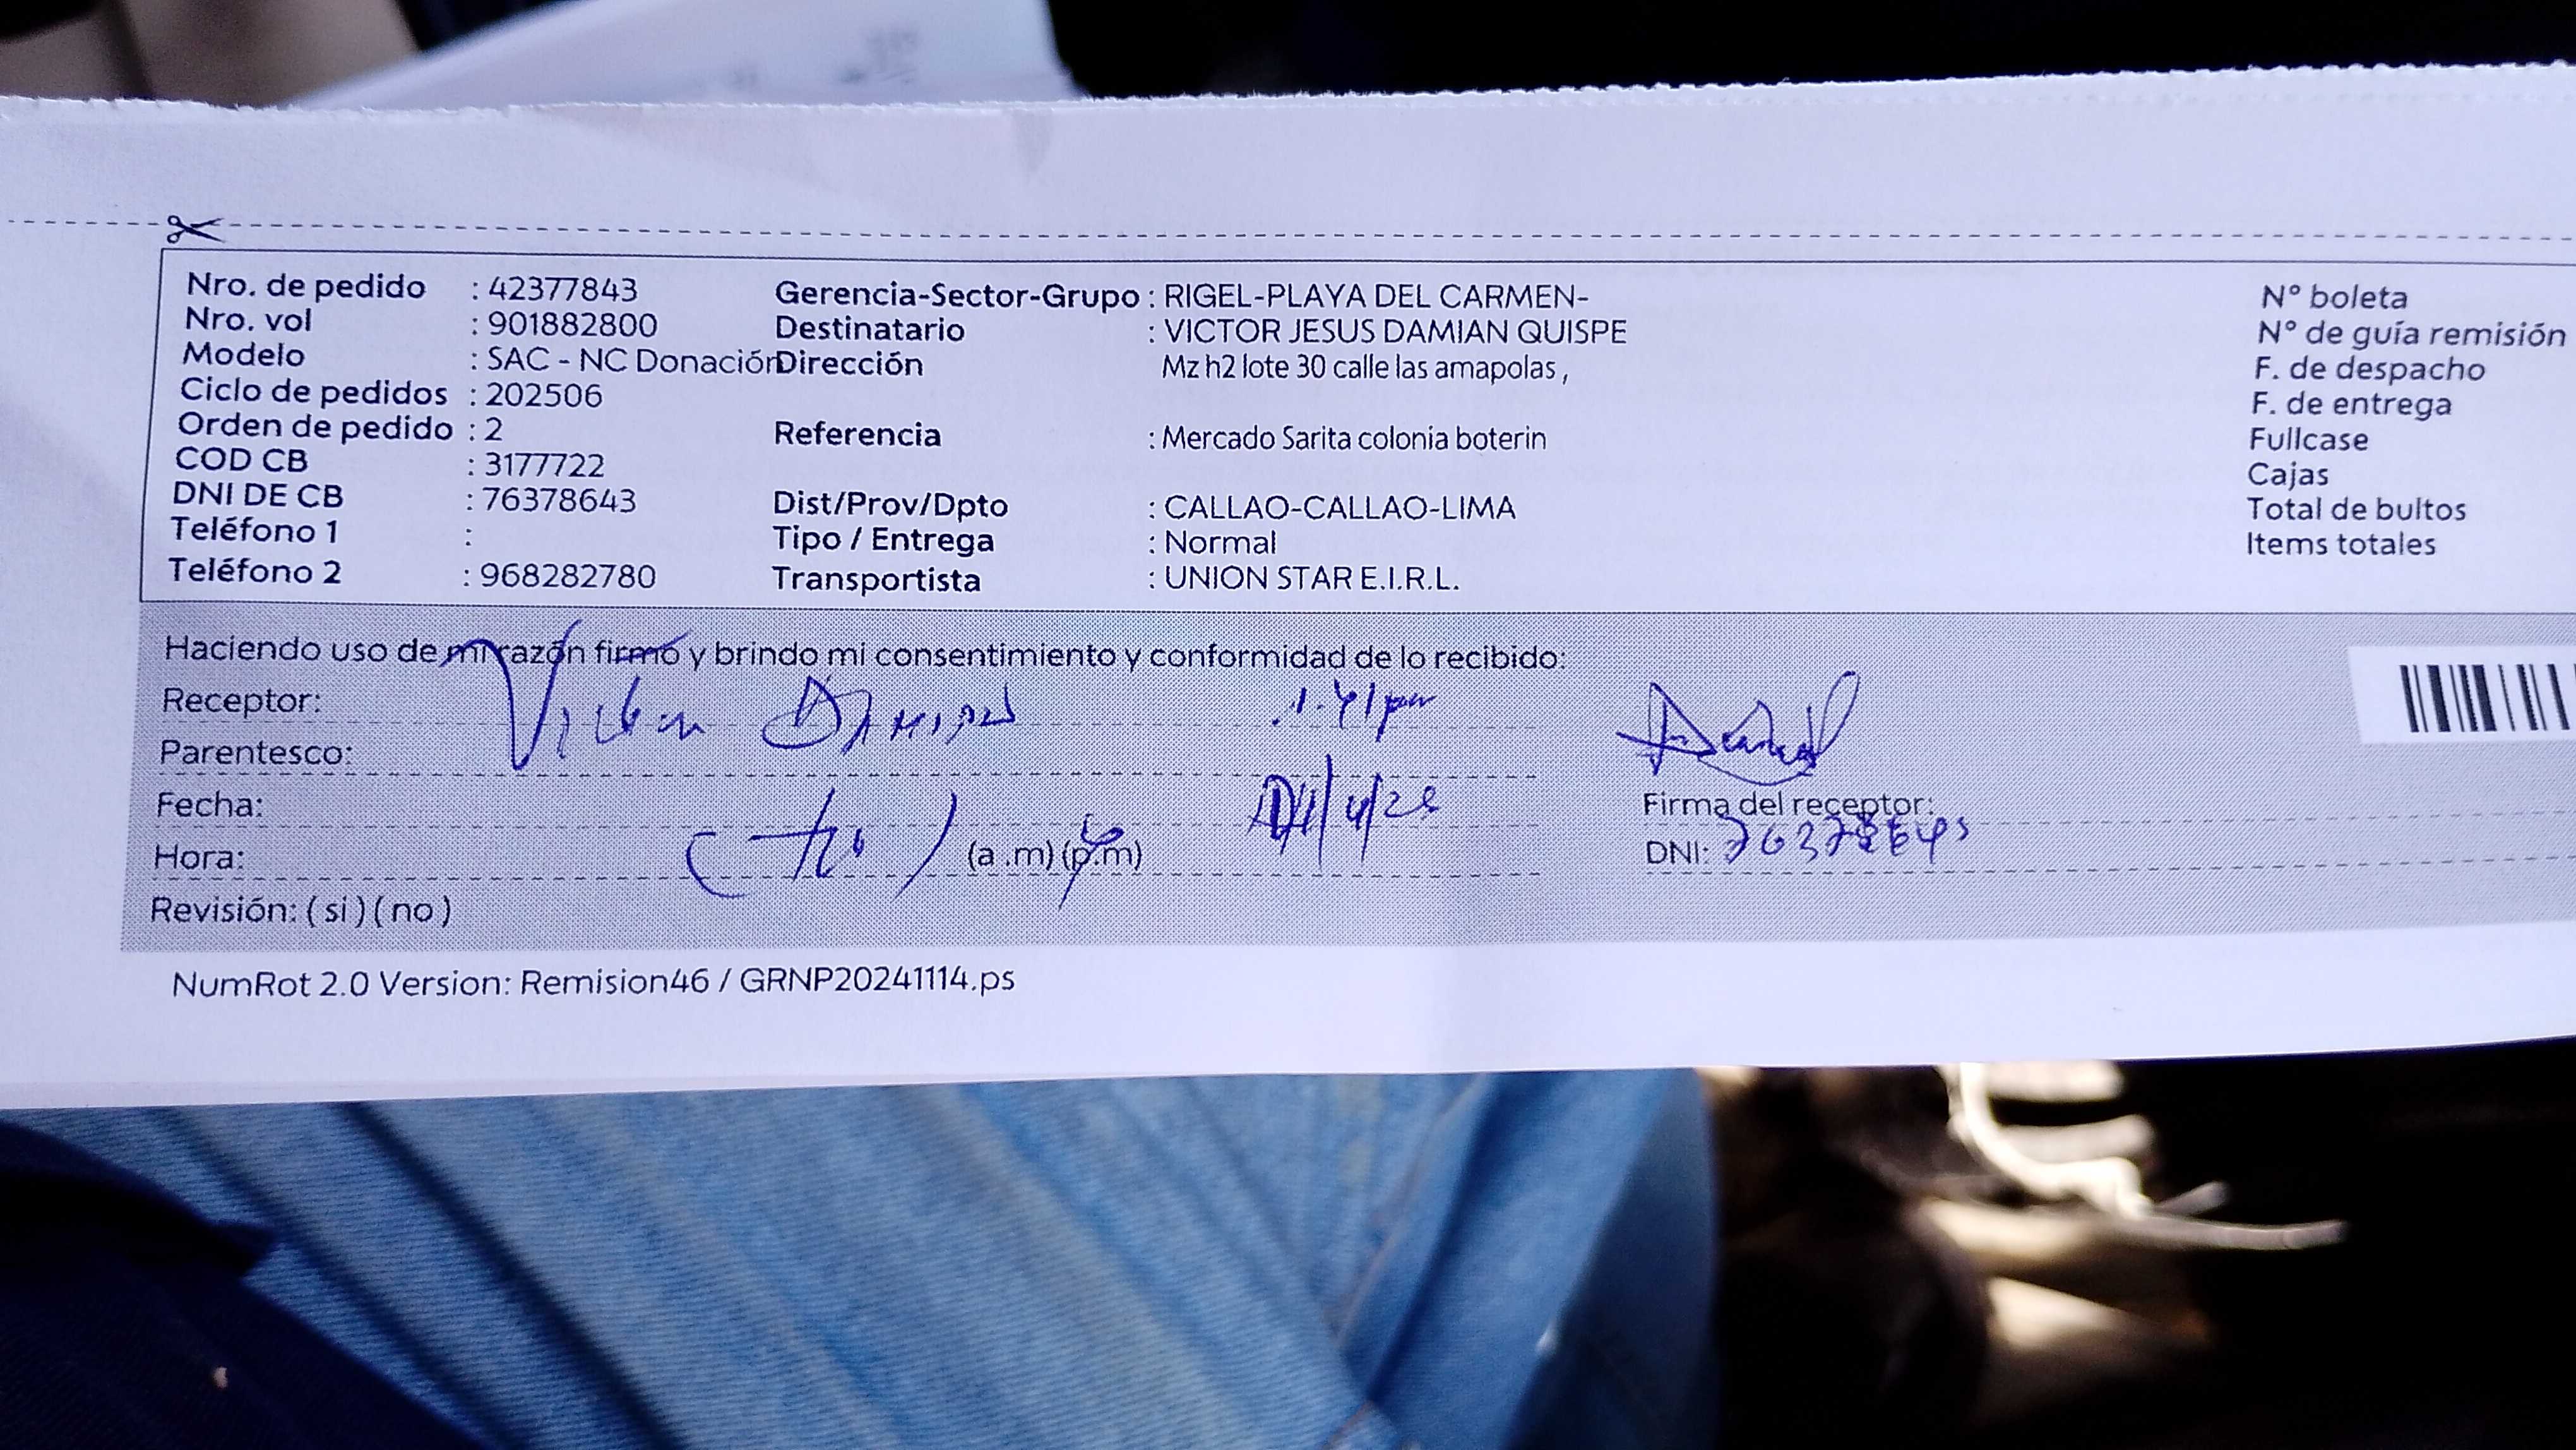 Nro. de pedido : 42377843 Gerencia-Sector-Grupo : RIGEL-PLAYA DEL CARMEN- N° boleta
Nro. vol : 901882800 Destinatario : VICTOR JESUS DAMIAN QUISPE N° de guía remisión
Modelo : SAC - NC Donación Dirección Mz h2 lote 30 calle las amapolas , F. de despacho
Ciclo de pedidos : 202506 F. de entrega
Orden de pedido : 2 Referencia : Mercado Sarita colonia boterin Fullcase
COD CB : 3177722 Cajas
DNI DE CB : 76378643 Dist/Prov/Dpto : CALLAO-CALLAO-LIMA Total de bultos
Teléfono 1 : Tipo / Entrega : Normal Items totales
Teléfono 2 : 968282780 Transportista : UNION STAR E.I.R.L.
Haciendo uso de mi razón firmo y brindo mi consentimiento y conformidad de lo recibido:
Receptor: Victor Damian 1.41 pm
Parentesco:
Fecha: Firma del receptor:
Hora: (a .m) (p.m) DNI:
Revisión: ( si ) ( no )
NumRot 2.0 Version: Remision46 / GRNP20241114.ps